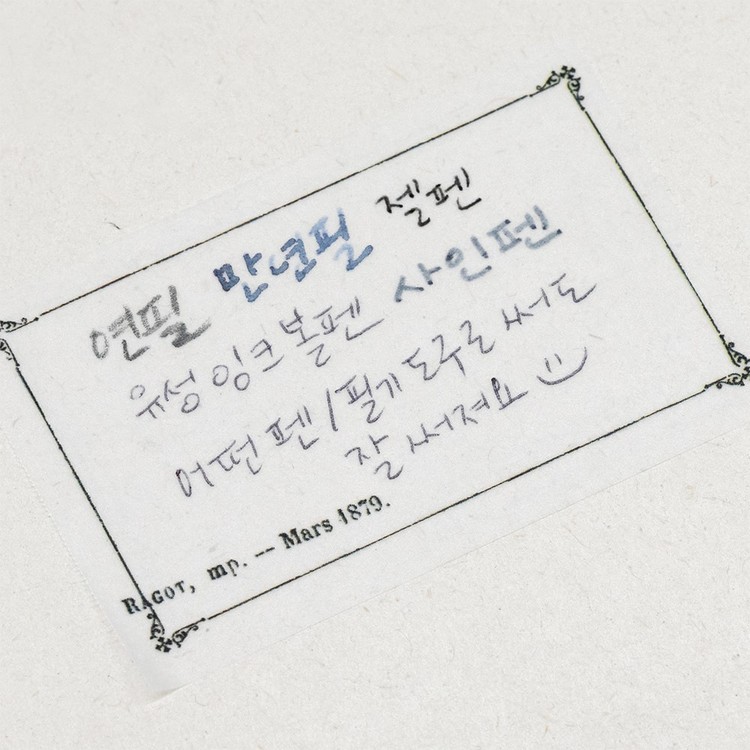 연필 만년필 젤펜
유성 잉크 볼펜 사인펜
어떤 펜/필기도구로 써도
잘 써져요 :)
RAGOT, imp. — Mars 1879.